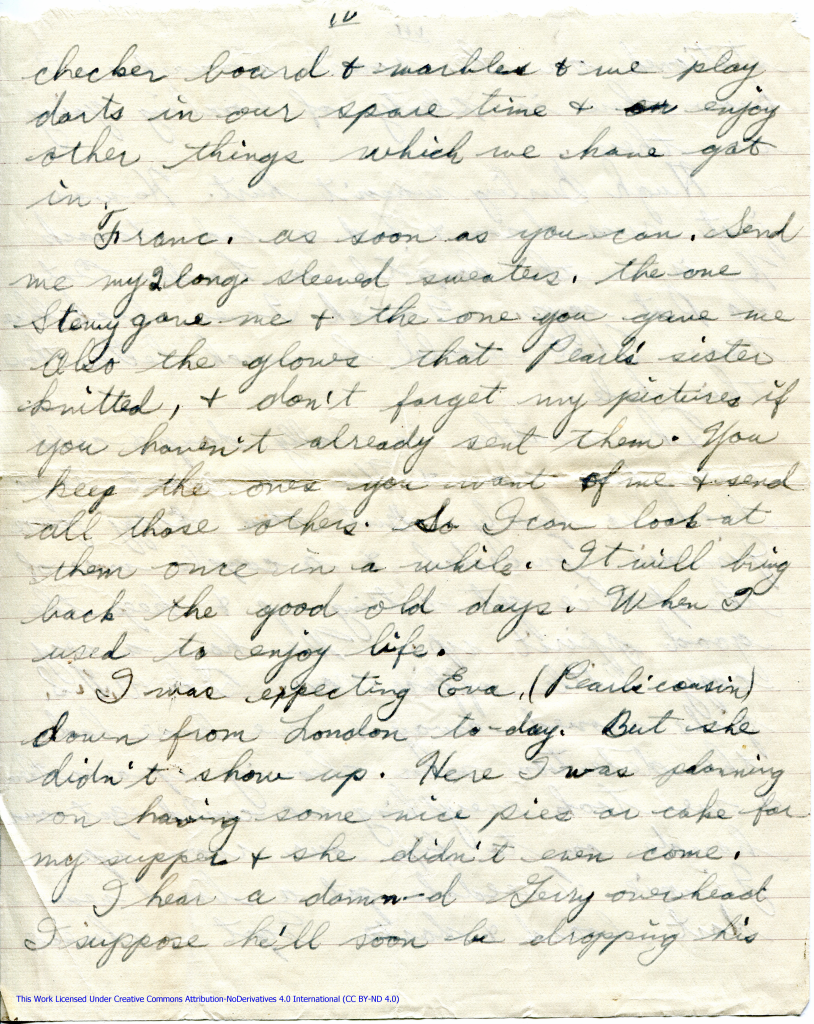 IV
checker board & marbles & we play
darts in our spare time & enjoy
other things which we have got
in.
Franc. as soon as you can. Send
me my 2 long sleeved sweaters. the one
Stewy gave me & the one you gave me
Also the gloves that Pearls' sister
knitted, & don't forget my pictures if
you haven't already sent them. You
keep the ones you want of me & send
all those others. So I can look at
them once in a while. It will bring
back the good old days. When I
used to enjoy life.
I was expecting Eva, (Pearls' cousin)
down from London to-day. But she
didn't show up. Here I was planning
on having some nice pies or cake for
my supper & she didn't even come.
I hear a damn-d Gerry overhead
I suppose he'll soon be dropping his
This Work Licensed Under Creative Commons Attribution-NoDerivatives 4.0 International (CC BY-ND 4.0)